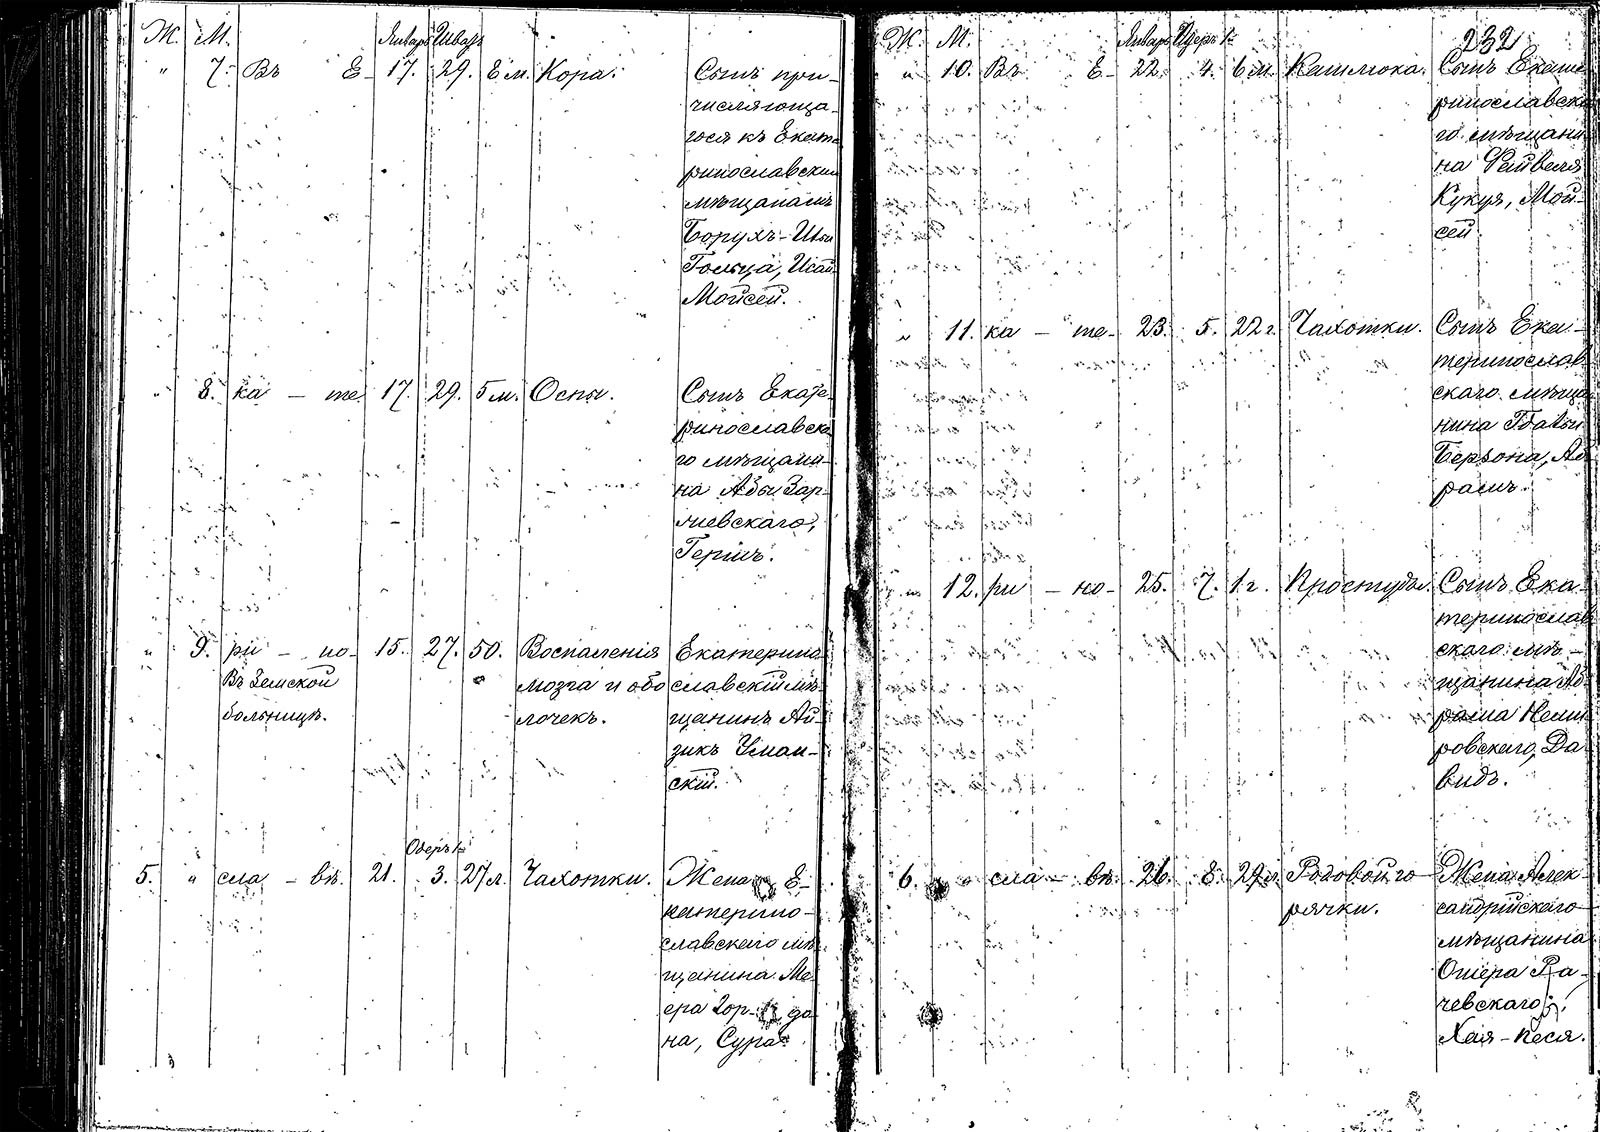 Ж. М. Январь Шватъ
" 7. Въ Е- 17. 29. 8 м. Кора. Сынъ при-
числяюща-
гося къ Екате-
ринославским
мѣщанамъ
Борухъ-
Гольца, Исай
Мойсей.
" 8. ка - те 17. 29. 5 м. Оспы. Сынъ Екате-
ринославска-
го мѣщани-
на Абы Зар-
чевскаго,
Гершъ.
" 9. ри - но- 15. 27. 50. Воспаленія Екатерино-
Въ Земской мозга и обо славскій мѣ-
больницѣ. лочекъ. щанинъ Ай-
зикъ Уман-
скій.
Одеръ 1й
5. " сла - вѣ. 21. 3. 27 л. Чахотки. Жена Е-
катерино-
славскаго мѣ-
щанина Ме-
ера Гор- до-
на, Сура.
Ж. М. Январь Одеръ 1й
232
" 10. Въ Е- 22. 4. 6 м. Кашлюка. Сынъ Екате-
ринославска-
го мѣщани-
на Файвеля
Кукуя, Мой-
сей.
" 11. ка - те- 23. 5. 22 г. Чахотки. Сынъ Ека-
теринослав-
скаго мѣща-
нина
Берзона, Аб-
рамъ.
" 12. ри - но- 25. 7. 1 г. Простуды. Сынъ Ека-
теринослав-
скаго мѣ-
щанина Аб-
рама Неми-
ровскаго, Да-
видъ.
6. " сла - вѣ. 26. 8. 29 л. Родовой го-
рячки. Жена Алек-
сандрійскаго
мѣщанина
Ошера Ра-
чевскаго,
Хая-Песя.